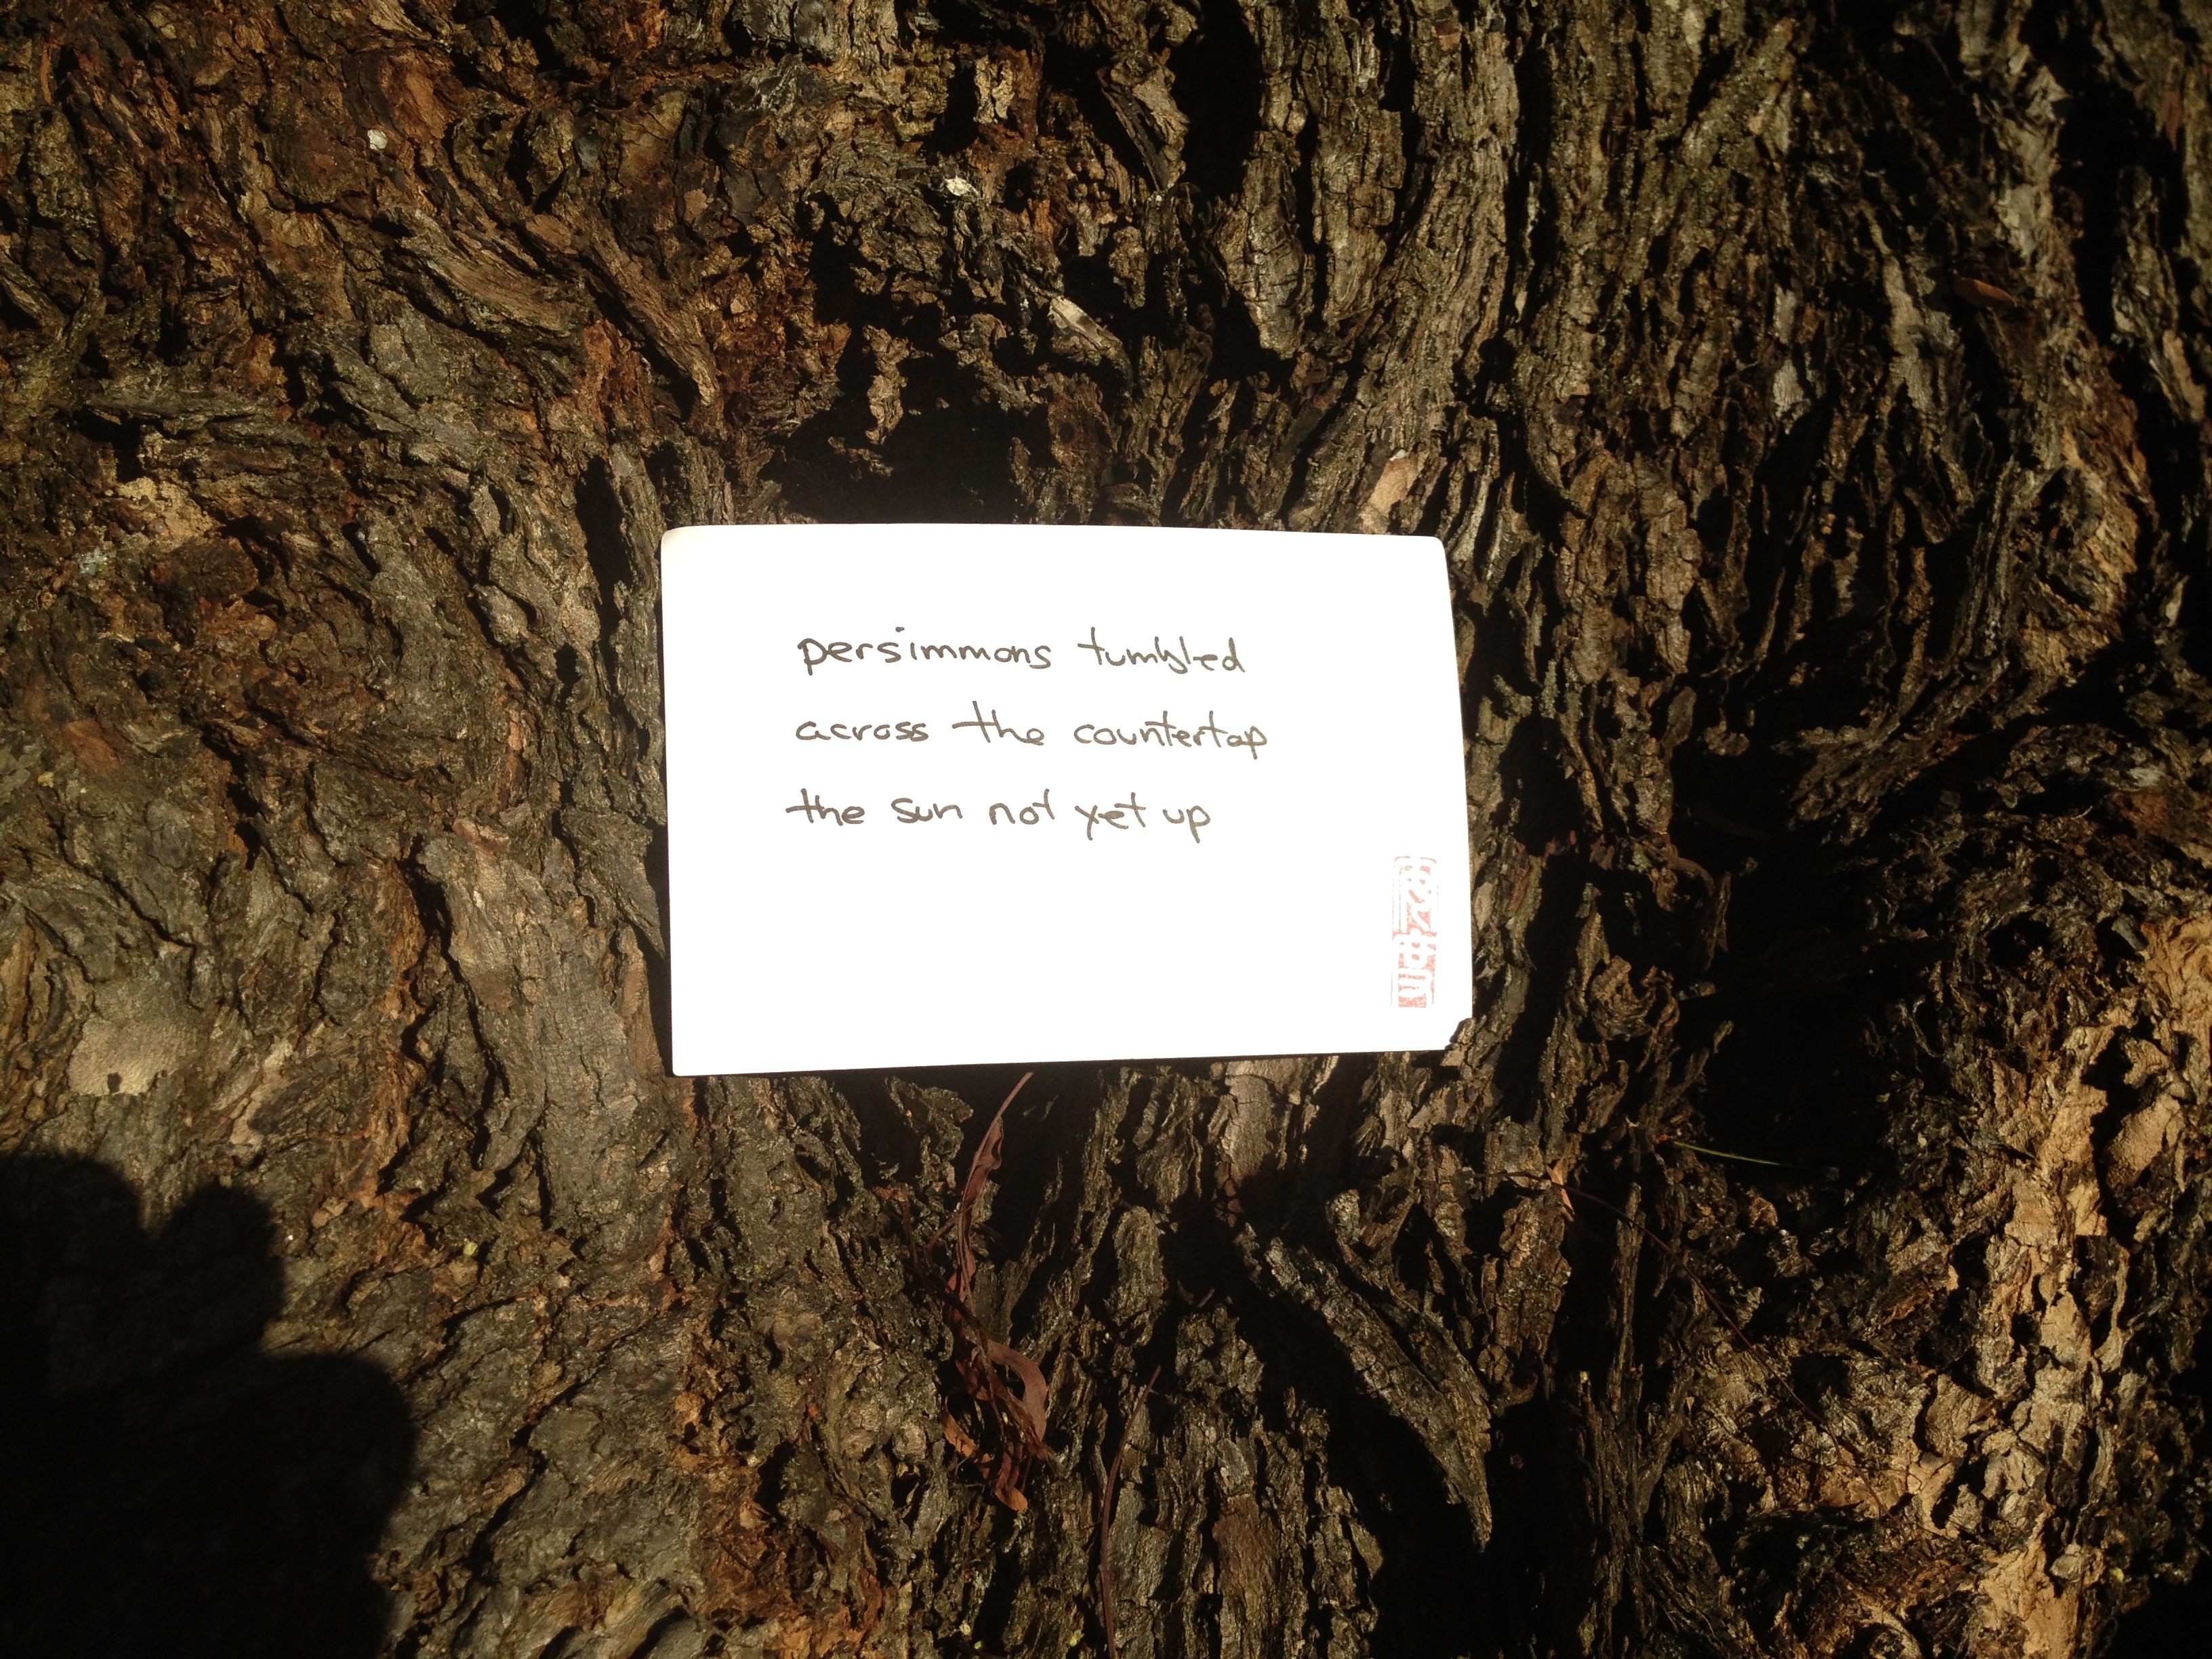 persimmons tumbled
across the countertop
the sun not yet up